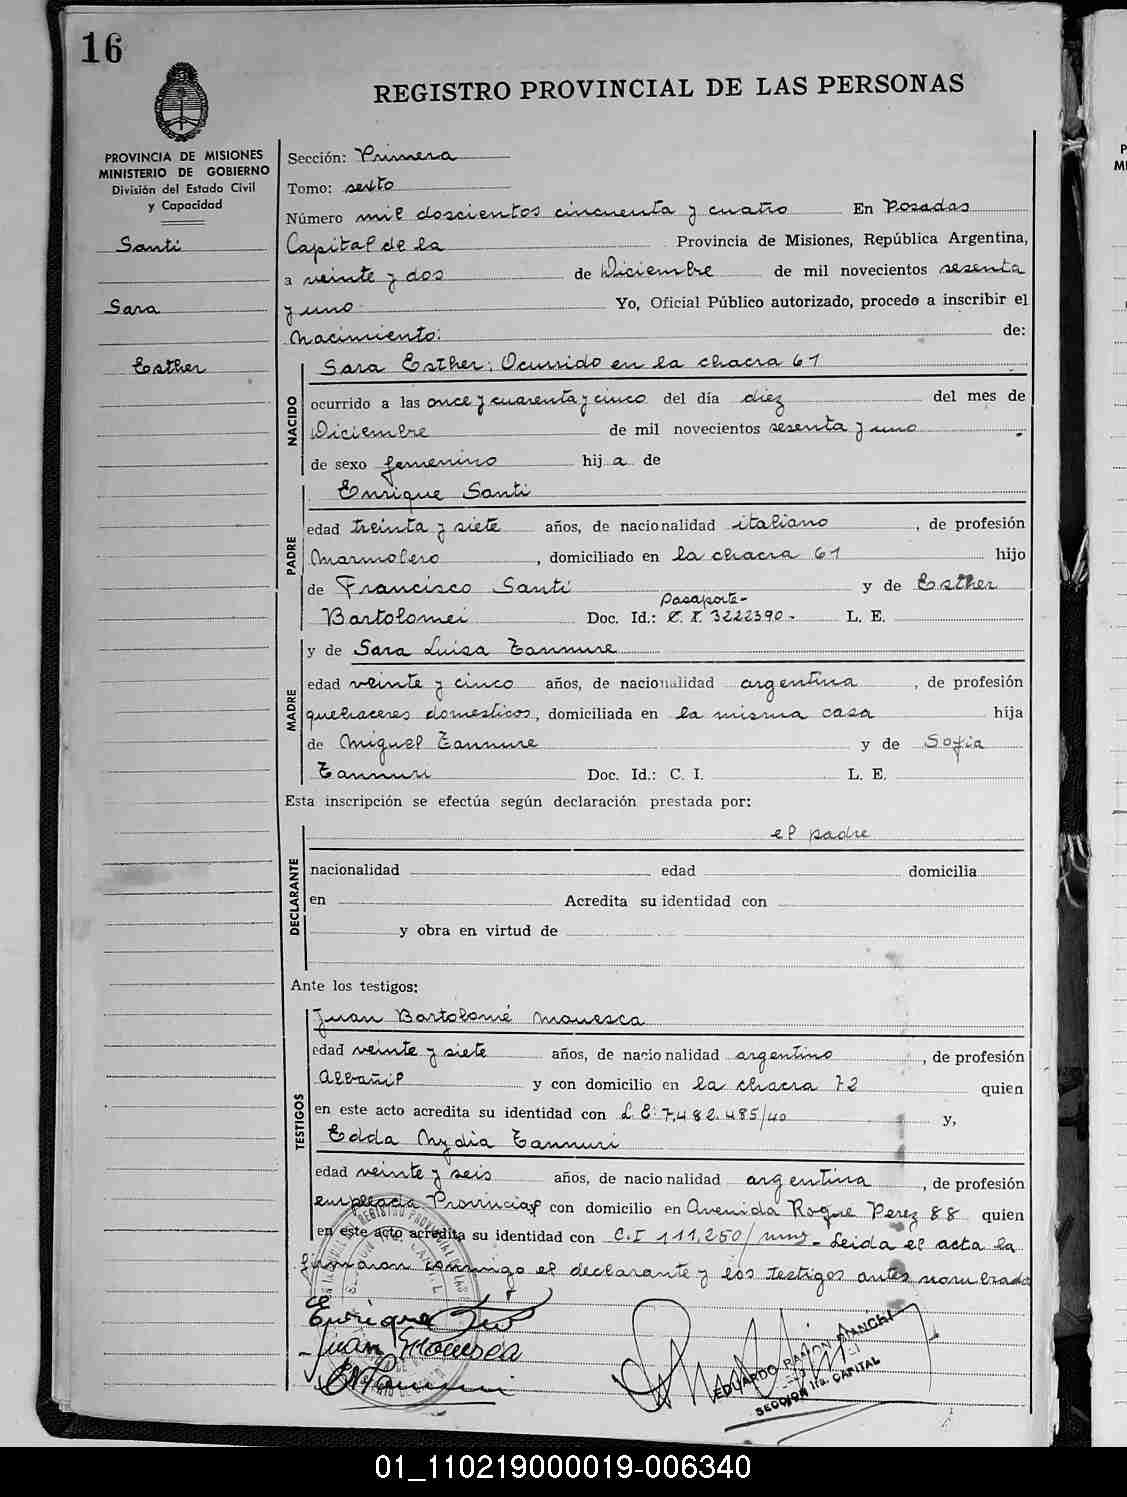 16
REGISTRO PROVINCIAL DE LAS PERSONAS
PROVINCIA DE MISIONES
MINISTERIO DE GOBIERNO
División del Estado Civil
y Capacidad
Santi
Sara
Esther
Sección: Primera
Tomo: sexto
Número mil doscientos cincuenta y cuatro En Posadas
Capital de la Provincia de Misiones, República Argentina,
a veinte y dos de Diciembre de mil novecientos sesenta
y uno Yo, Oficial Público autorizado, procedo a inscribir el
Nacimiento: de:
NACIDO
Sara Esther; Ocurrido en la chacra 61
ocurrido a las once y cuarenta y cinco del día diez del mes de
Diciembre de mil novecientos sesenta y uno
de sexo femenino hij a de
PADRE
Enrique Santi
edad treinta y siete años, de nacionalidad italiano, de profesión
Marmolero, domiciliado en la chacra 61 hijo
de Francisco Santi y de Esther
Pasaporte-
Bartolomei Doc. Id.: C. I. 3222390.- L. E.
y de Sara Luisa Zannure
MADRE
edad veinte y cinco años, de nacionalidad argentina, de profesión
quehaceres domesticos, domiciliada en la misma casa hija
de Miguel Zannure y de Sofia
Zannuri Doc. Id.: C. I. L. E.
Esta inscripción se efectúa según declaración prestada por:
DECLARANTE
el padre
nacionalidad edad domicilia
en Acredita su identidad con
y obra en virtud de
Ante los testigos:
TESTIGOS
Juan Bartolomé Mouesca
edad veinte y siete años, de nacionalidad argentino, de profesión
Albañil y con domicilio en la chacra 72 quien
en este acto acredita su identidad con L.E: 7.482.485/40 y,
Edda Nydia Zannuri
edad veinte y seis años, de nacionalidad argentina, de profesión
empleada Provincial con domicilio en Avenida Roque Perez 88 quien
en este acto acredita su identidad con C.I 111.250/ Leida el acta la
firmaron conmigo el declarante y los testigos antes nombrados
Enrique
Juan Mouesca
EDUARDO RAMON BIANCHI
SECCION 1ra. CAPITAL
01_110219000019-006340